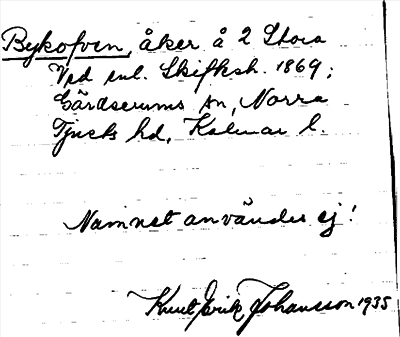 Bykofven, åker å 2 Stora
Vad enl. Skifksh. 1869;
Gärdserums sn, Norra
Tjusts hd, Kalmar l.
Namnet användes ej!
Knut Erik Johansson 1935